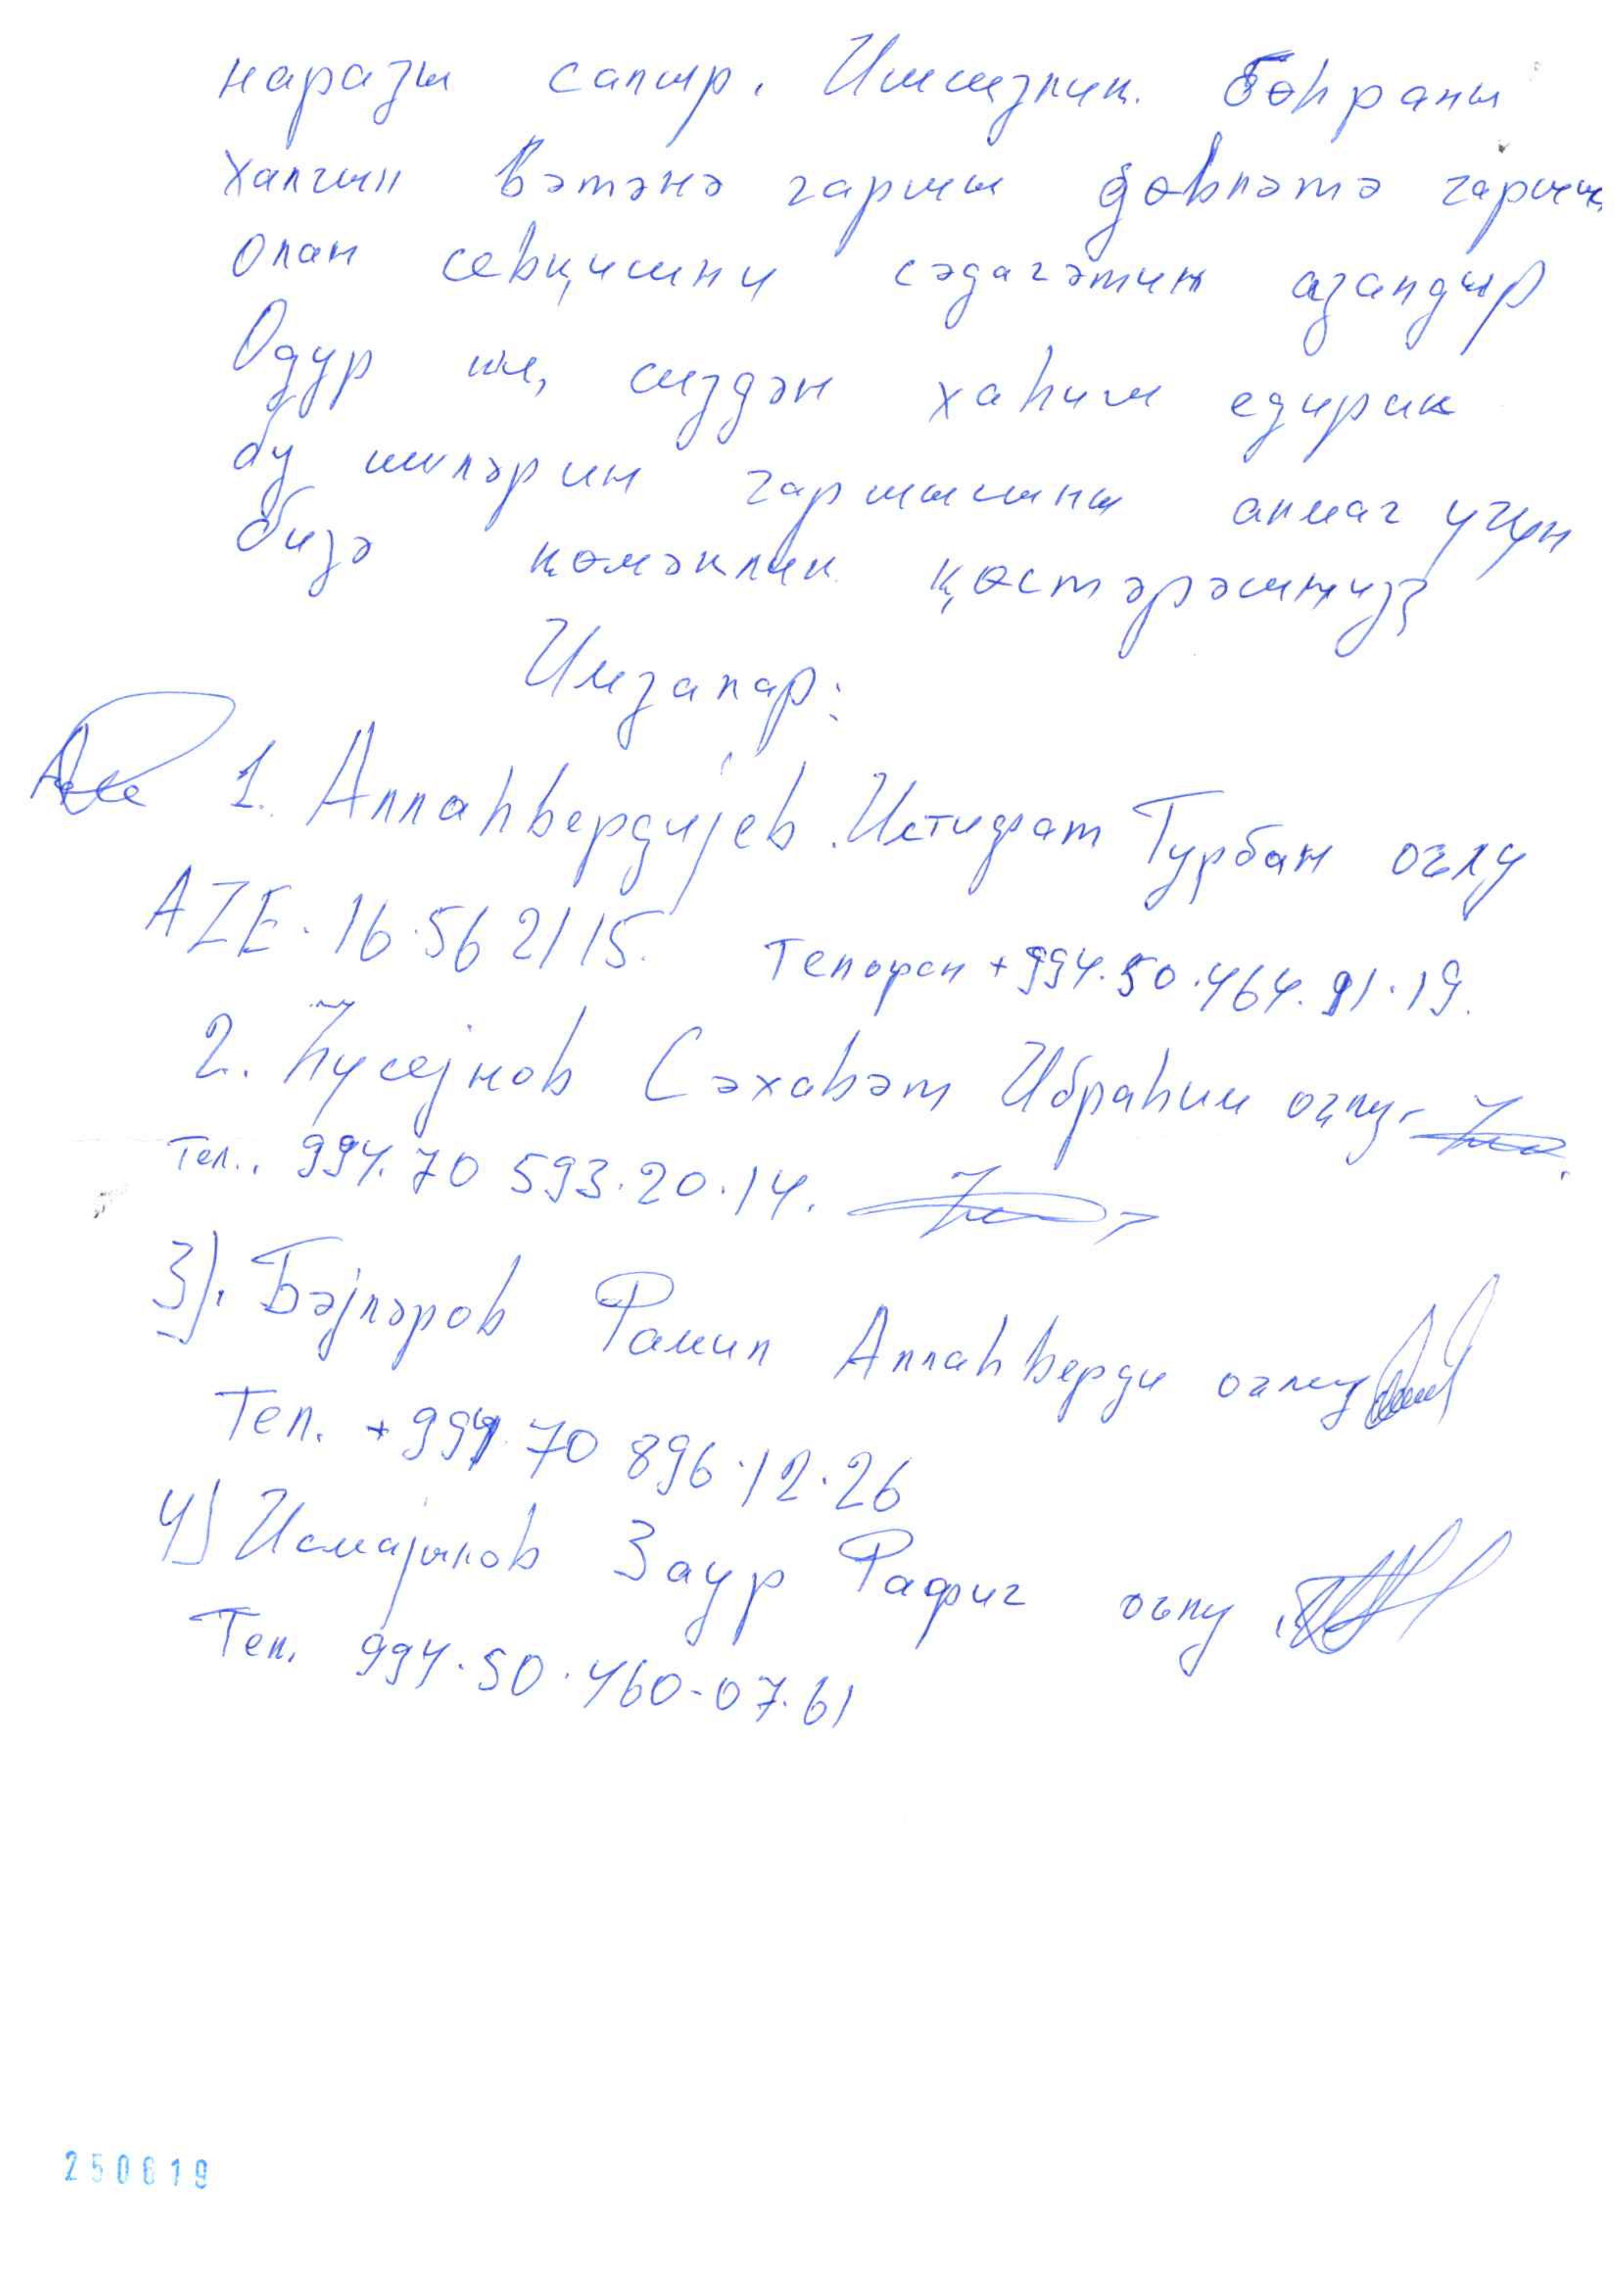 наразы салыр. Ишсизлик. Бөһраны
Халгын Вәтәнә гаршы дөвләтә гаршы
олан севҝисини сәдагәтин азалдыр
Одур ки, сиздән хаһиш едирик
бу ишләрин гаршысыны алмаг үчүн
бизә көмәклик ҝөстәрәсиниз
Имзалар:
1. Аллаһвердијев Истифат Гурбан оғлу
AZE. 16.562115. Телефон +994.50.464.91.19.
2. Һусејнов Сәхавәт Ибраһим оғлу.
Тел.. 994.70 593.20.14.
3). Бәјләров Рамил Аллаһверди оғлу
Тел. +994 70 896.12.26
4) Исмајылов Заур Рафиг оғлу
Тел. 994.50.460-07.61
250619